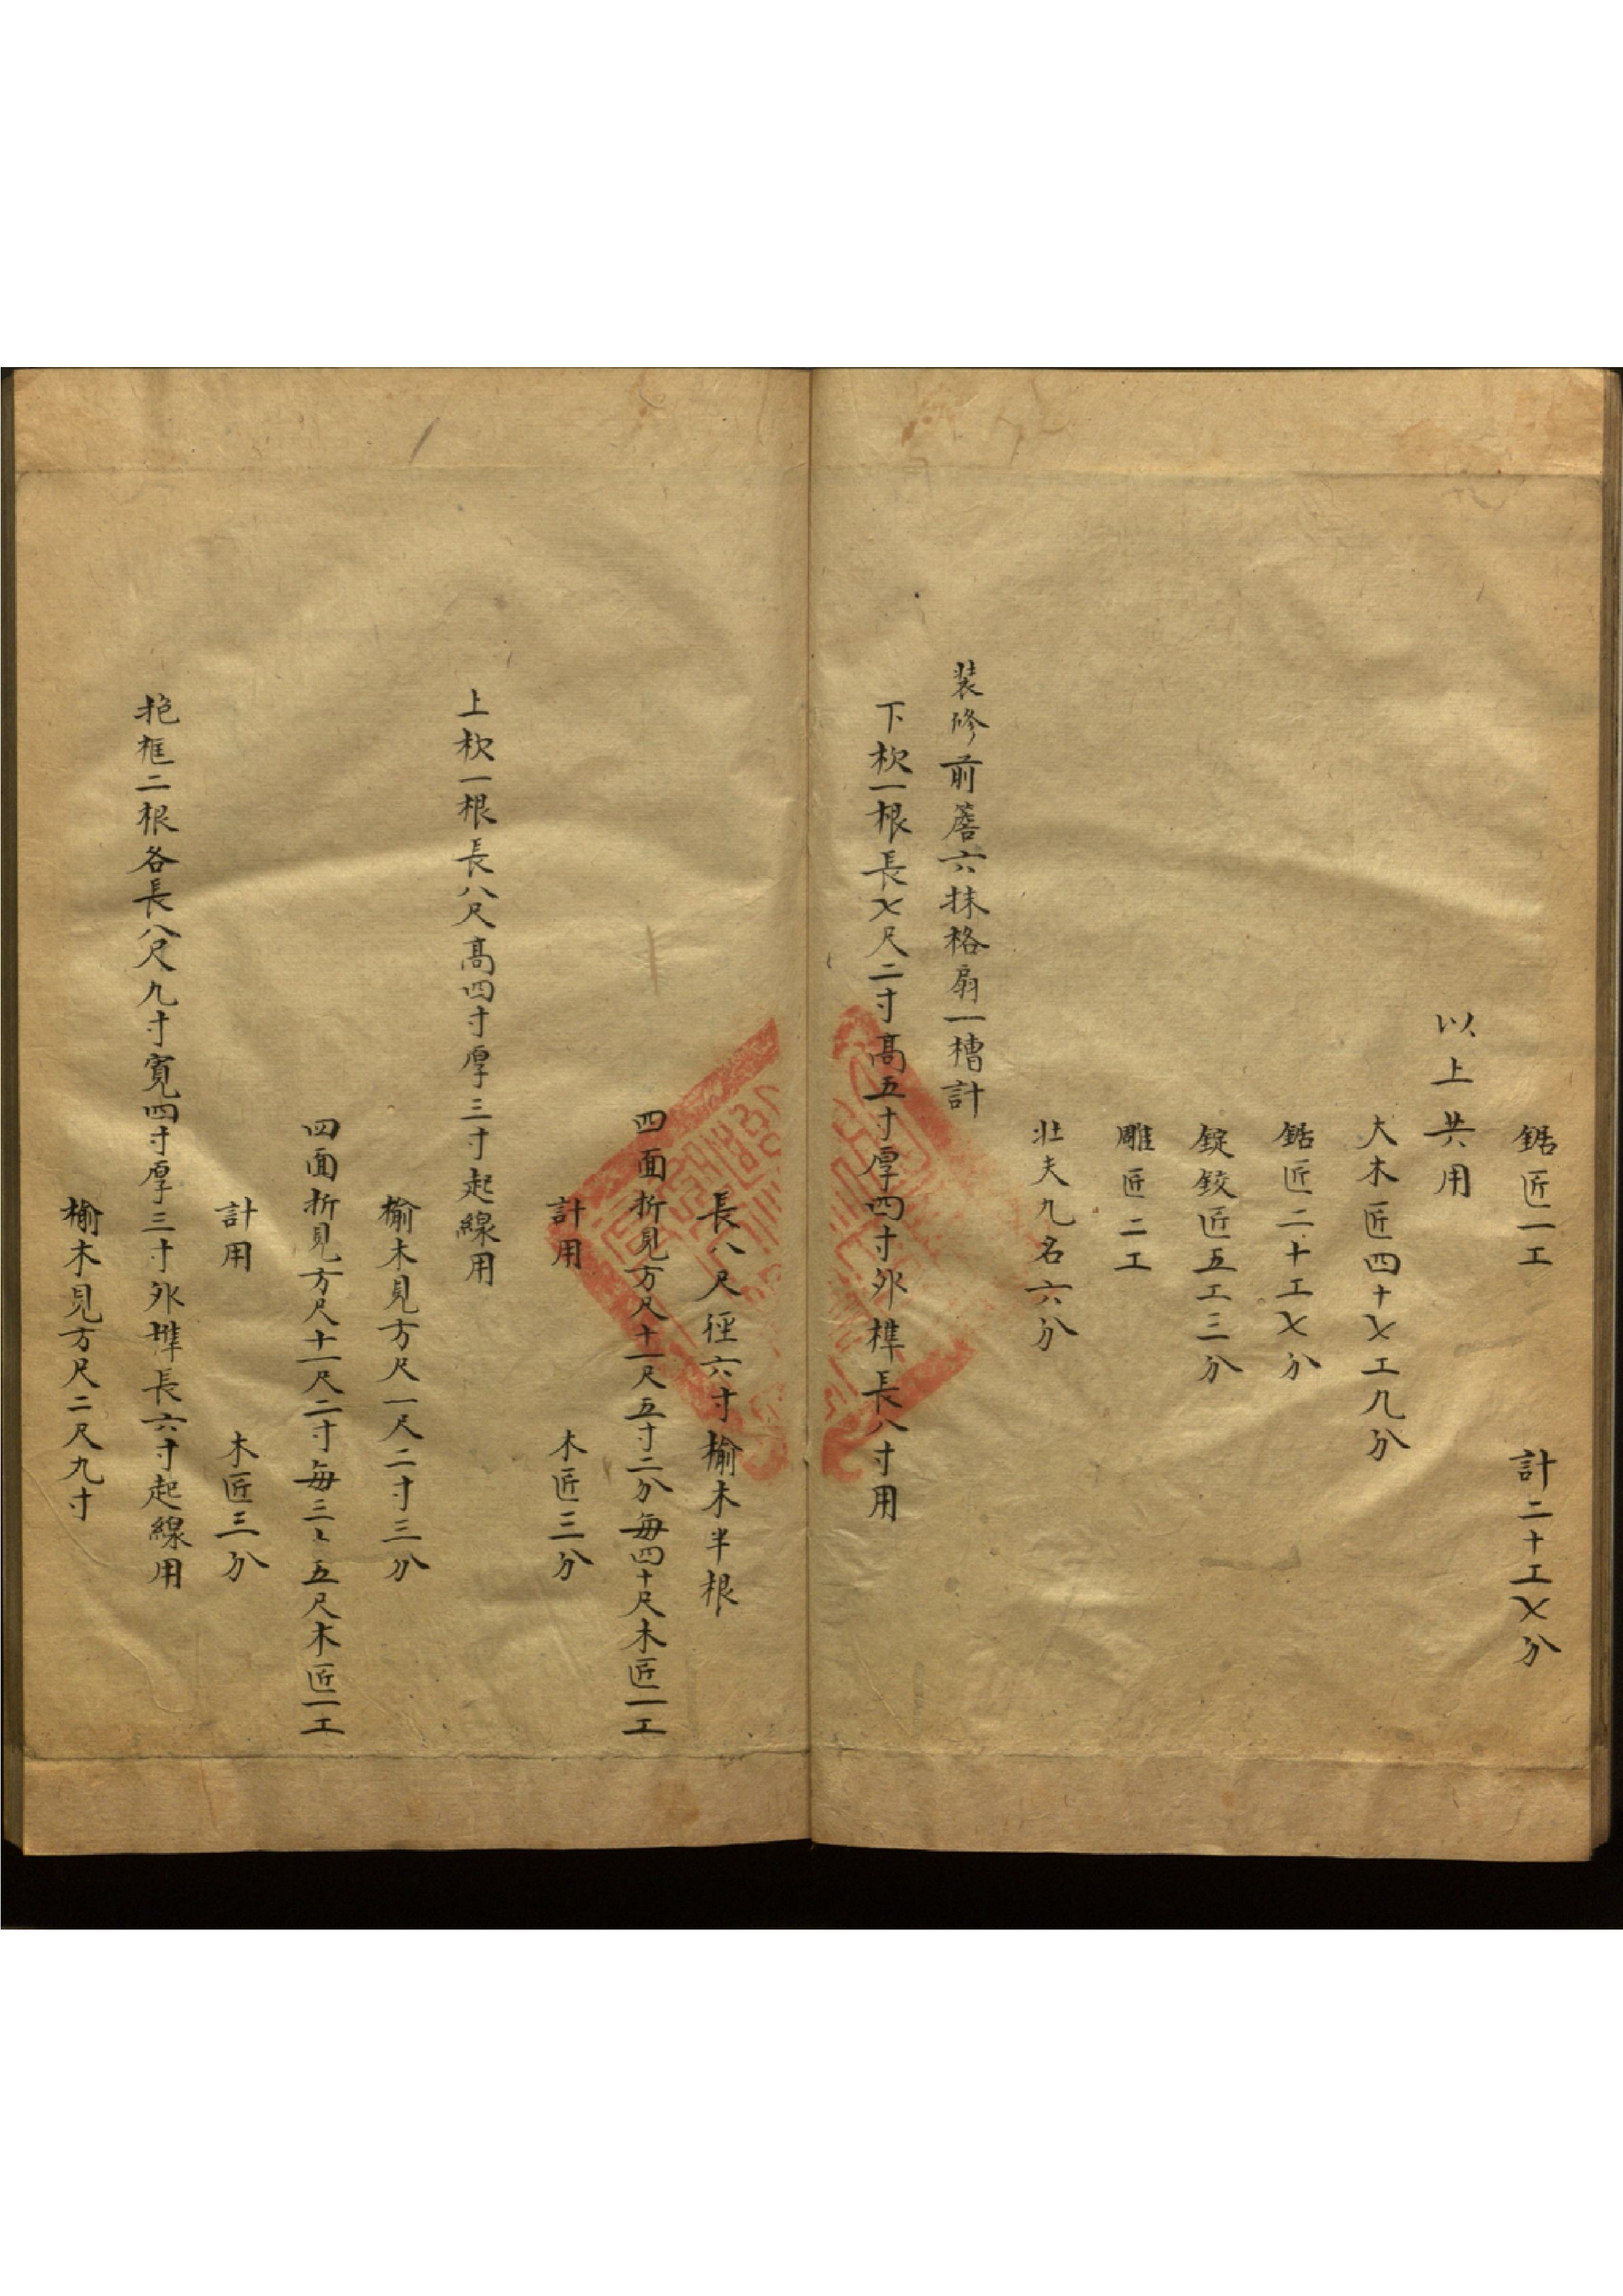 鋸匠一工　計二十工七分
以上共用
大木匠四十七工九分
鋸匠二十工七分
錠鉸匠五工三分
雕匠二工
壯夫九名六分
裝修前簷六抹格扇一槽計
下枕一根長七尺二寸高五寸厚四寸外榫長八寸用
長八尺徑六寸榆木半根
四面折見方尺十一尺五寸二分每四十尺木匠一工
計用　木匠三分
上枕一根長八尺高四寸厚三寸起線用
榆木見方尺一尺二寸三分
四面折見方尺十一尺二寸每三〻五尺木匠一工
計用　木匠三分
抱框二根各長八尺九寸寬四寸厚三寸外榫長六寸起線用
榆木見方尺二尺九寸